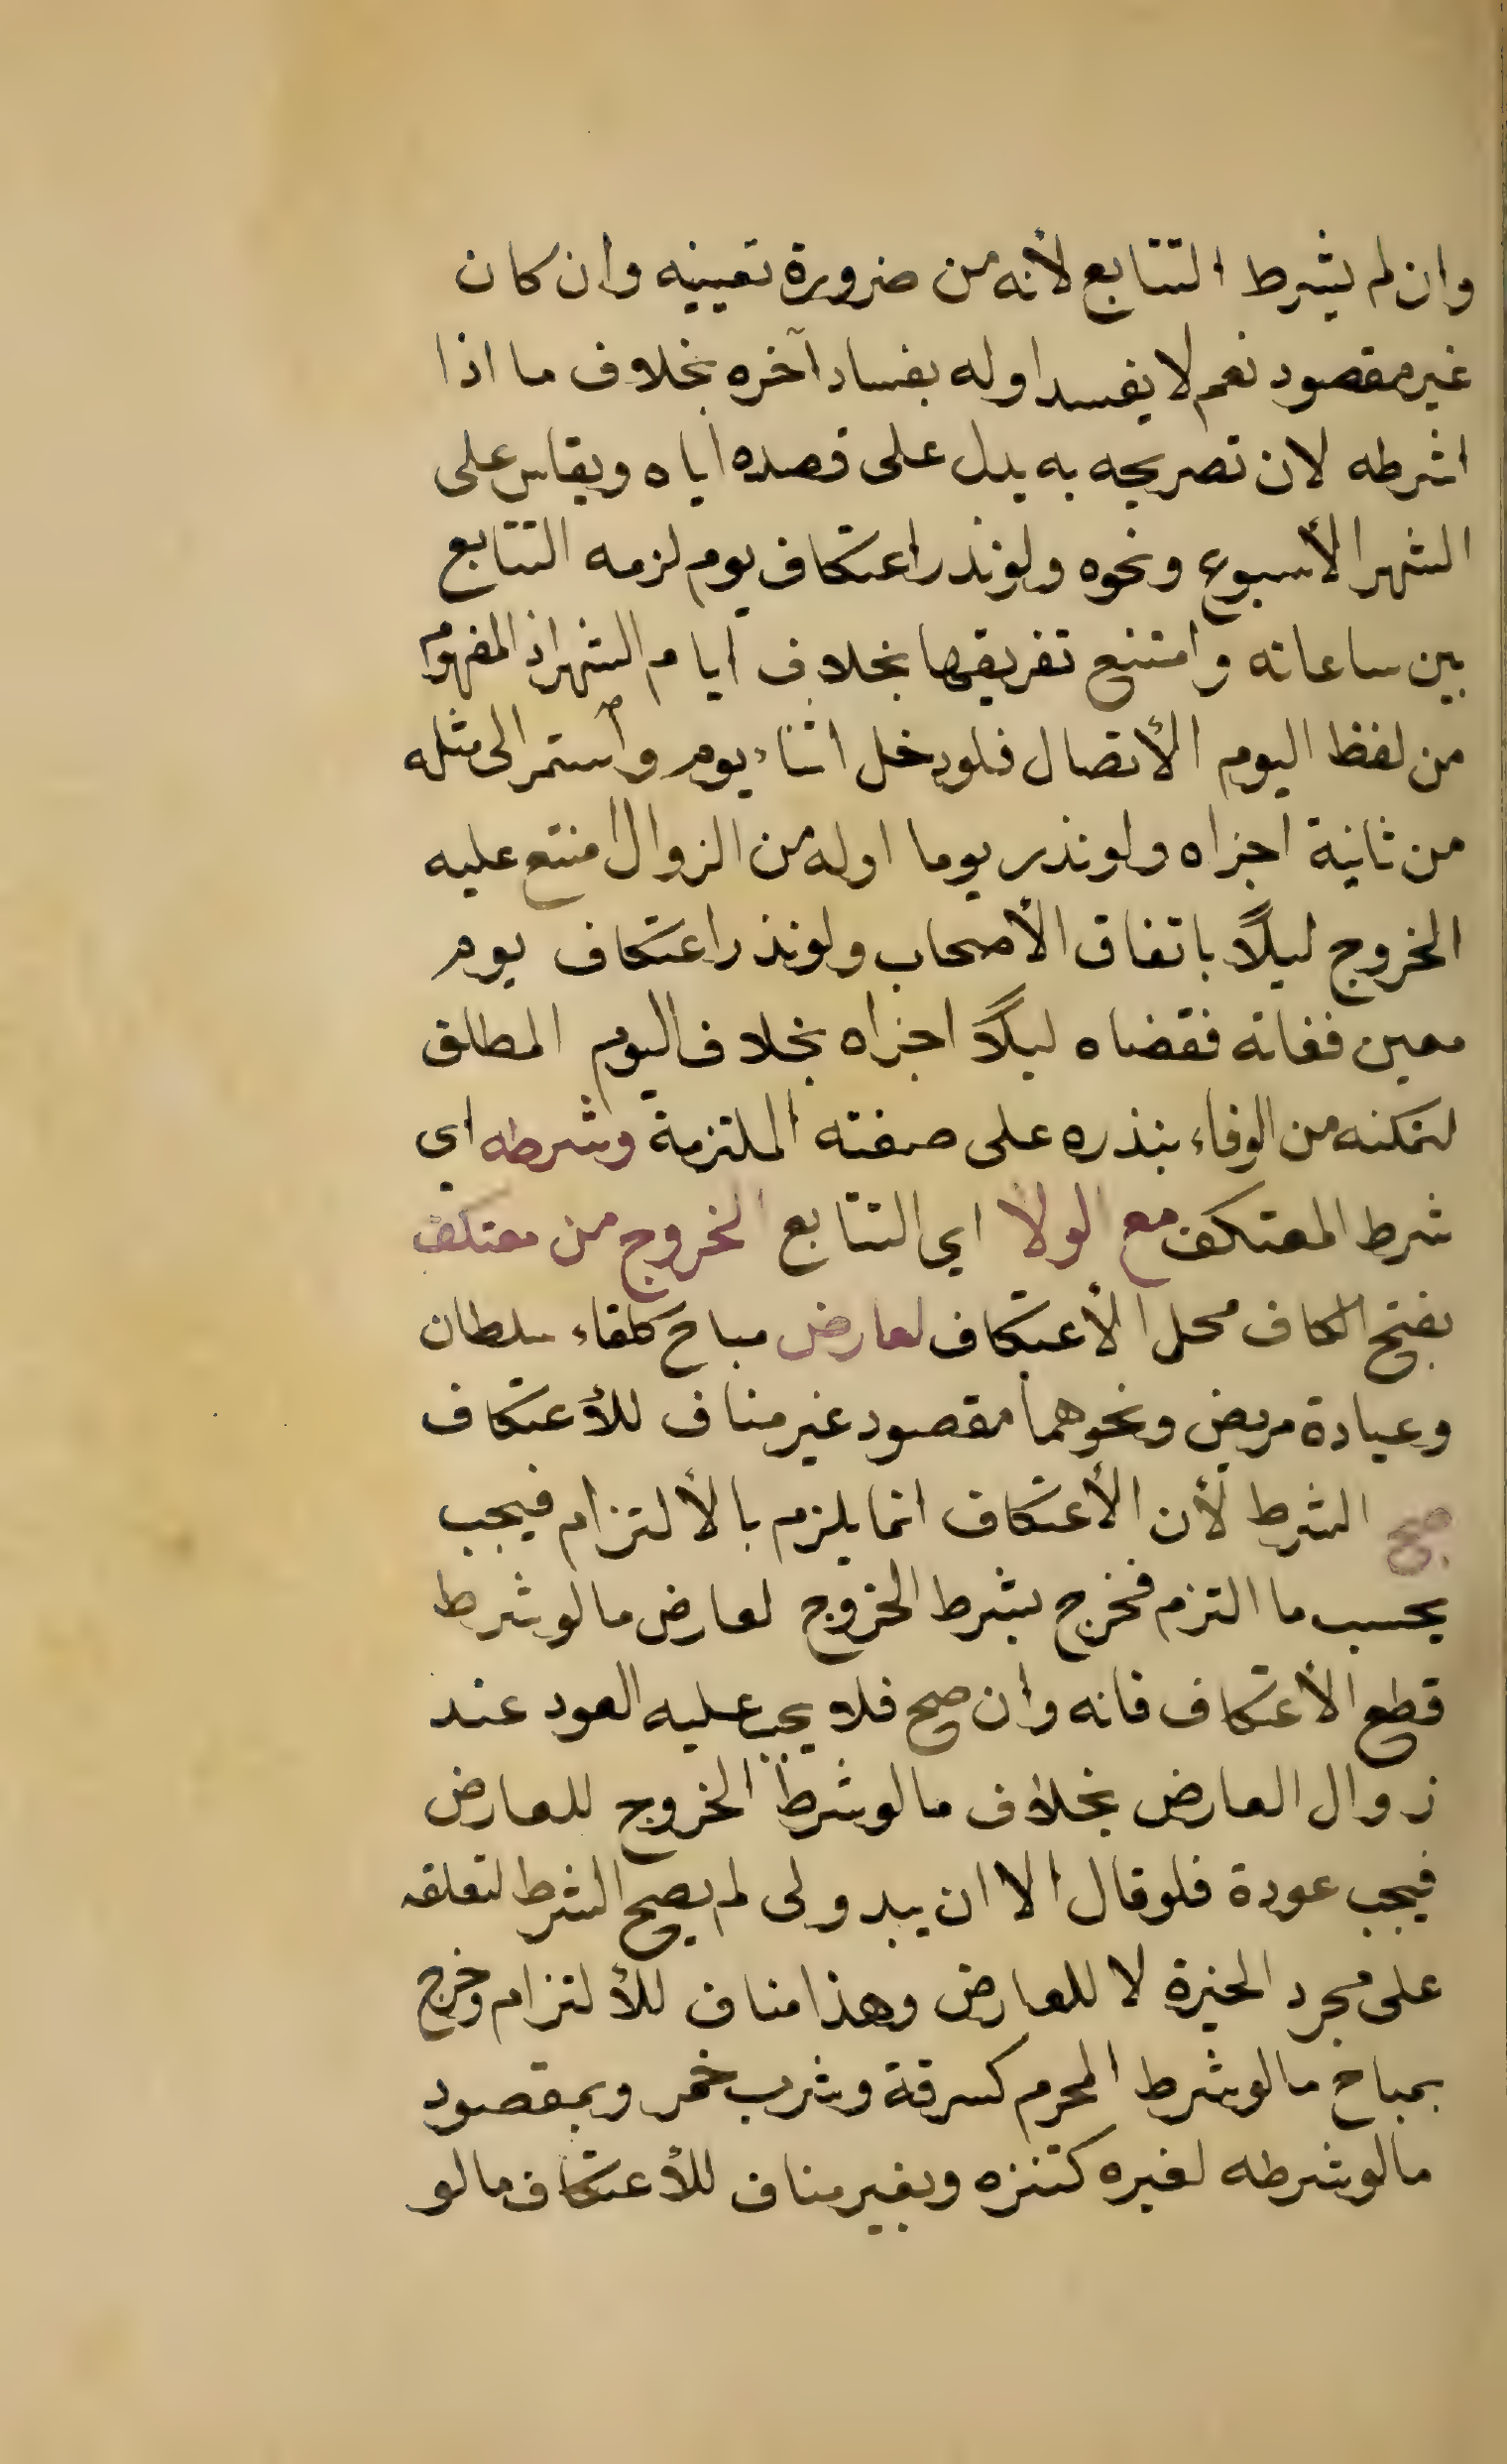 وان لم يشرط التتابع لأنه من ضرورة تعيينه وان كان
غير مقصود نعم لا يفسد اوله بفساد آخره بخلاف ما اذا
اشرطه لان تصريحه به يدل على قصده اياه ويقاس على
الشهر الأسبوع ونحوه ولو نذر اعتكاف يوم لزمه التتابع
بين ساعاته وامتنع تفريقها بخلاف ايام الشهر اذ المفهوم
من لفظ اليوم الأتصال فلو دخل اثناء يوم واستمر الى مثله
من ثانية اجزاه ولو نذر يوما اوله من الزوال امتنع عليه
الخروج ليلًا باتفاق الأصحاب ولو نذر اعتكاف يوم
معين ففاته فقضاه ليلًا اجزاه بخلاف اليوم المطلق
لتمكنه من الوفاء بنذره على صفته الملتزمة وشرطه اي
شرط المعتكف مع الولا اي التتابع الخروج من معتكف
بفتح الكاف محل الأعتكاف لعارض مباح كلقاء سلطان
وعيادة مريض ونحوهما مقصود غير مناف للأعتكاف
صح الشرط لأن الأعتكاف انما يلزم بالألتزام فيجب
بحسب ما التزم فخرج بشرط الخروج لعارض ما لو شرط
قطع الأعتكاف فانه وان صح فلا يجب عليه العود عند
زوال العارض بخلاف ما لو شرط الخروج للعارض
فيجب عودة فلو قال الا ان يبدو لى لم يصح الشرط لتعلقه
على مجرد الخيرة لا للعارض وهذا مناف للألتزام وخرج
بمباح ما لو شرط المحرم كسرقة وشرب خمر وبمقصود
ما لو شرطه لغيره كتنزه وبغير مناف للأعتكاف ما لو